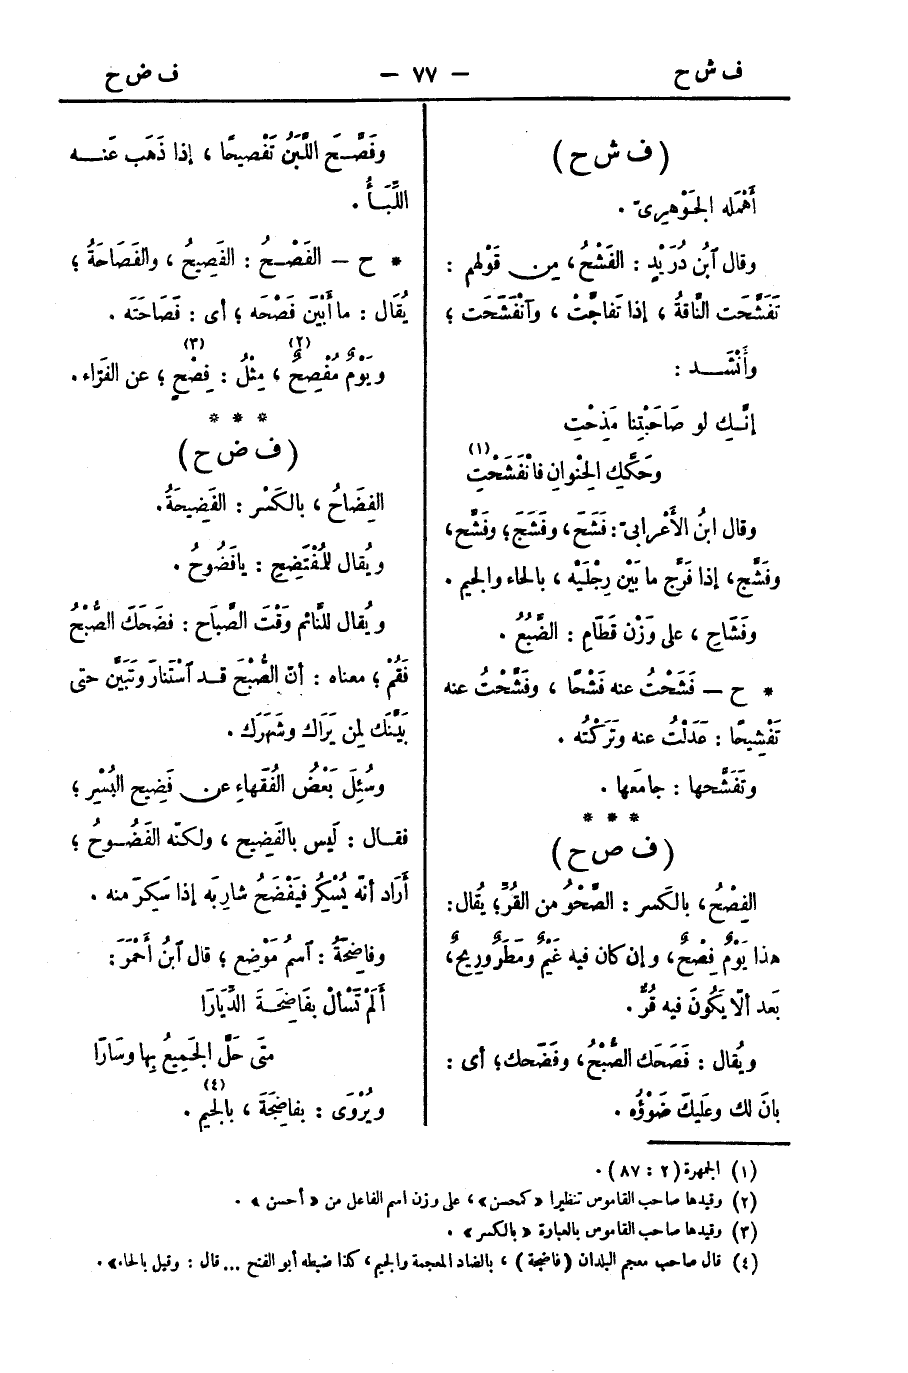 ف ش ح — ٧٧ — ف ض ح
( ف ش ح )
أَهْمَله الجَوْهرِىّ .
وقال آبنُ دُرَيْدٍ : الفَشْحُ ، مِن قَوْلِهم :
تَفَشَّحَت النَّاقَةُ ، إذا تَفاجَّتْ ، وآنْفَشَحَت ؛
وأَنْشَد :
إنَّكِ لو صَاحَبْتِنا مَذِحْتِ
وَحَكَّكِ الحِنْوانِ فانْفَشَحْتِ (١)
وقال ابنُ الأَعْرابىّ : فَشَحَ ، وفَشَجَ ؛ وفَشَّح ،
وفَشَّج ، إذا فَرَّج ما بَيْن رِجْلَيْه ، بالحاء والجيم .
وفَشَاحِ ، على وَزْن قَطَامِ : الضَّبُعُ .
* ح — فَشَحْتُ عنه فَشْحًا ، وفَشَّحْتُ عنه
تَفْشِيحًا : عَدَلْتُ عنه وتَرَكْتُه .
وتَفَشَّحها : جامَعها .
* * *
( ف ص ح )
الفِصْحُ ، بالكَسر : الصَّحْوُ من القُرِّ ؛ يُقال :
هذا يَوْمٌ فِصْحٌ ، وإن كان فيه غَيْمٌ ومَطَرٌ ورِيحٌ ،
بَعد ألّا يَكُونَ فيه قُرٌّ .
ويُقال : فَصَحَك الصُّبْحُ ، وفَصَّحك ؛ أى :
بانَ لك وعَلَيكَ ضَوْؤُه .
وفَصَّحَ اللَّبَنُ تَفْصِيحًا ، إذا ذَهَب عَنه
اللِّبَأُ .
* ح — الفَصْحُ : الفَصِيحُ ، والفَصَاحَةُ ؛
يُقَال : ما أَبْيَن فَصْحَه ؛ أى : فَصَاحَتَه .
ويَوْمٌ مُفْصِحٌ (٢) ، مِثْلُ : فِصْحٍ (٣) ؛ عن الفَرّاء .
* * *
( ف ض ح )
الفِضَاحُ ، بالكَسْر : الفَضِيحَةُ .
ويُقال للمُفْتَضِحِ : يافَضُوحُ .
ويُقال للنَّائم وَقْتَ الصَّبَاح : فَضَحَكَ الصُّبْحُ
فَقُمْ ؛ معناه : أنّ الصُّبْحَ قد آسْتَنارَ وتَبَيَّنَ حتى
بَيَّنَك لِمن يَرَاك وشَهَرَك .
وسُئِلَ بَعْضُ الفُقَهاءِ عن فَضِيح البُسْرِ ؛
فقال : لَيس بالفَضِيح ، ولكنّه الفَضُوحُ ؛
أَرَاد أنّه يُسْكِرُ فيَفْضَحُ شارِبَه إذا سَكِرَ منه .
وفاضِحَةُ : آسمُ مَوْضِع ؛ قال آبنُ أَحْمَرَ :
أَلَمْ تَسْأَلْ بفَاضِحَةَ الدِّيَارَا
متَى حَلَّ الجَمِيعُ بِها وسَارَا
ويُرْوَى : بفاضِجَةَ (٤) ، بالجيم .
(١) الجمهرة (٢ : ٨٧) .
(٢) وقيدها صاحب القاموس تنظيرا « كمحسن » ، على وزن اسم الفاعل من « أحسن » .
(٣) وقيدها صاحب القاموس بالعبارة « بالكسر » .
(٤) قال صاحب معجم البلدان (فاضجة) ، بالضاد المعجمة والجيم ، كذا ضبطه أبو الفتح ... قال : وقيل بالحاء» .